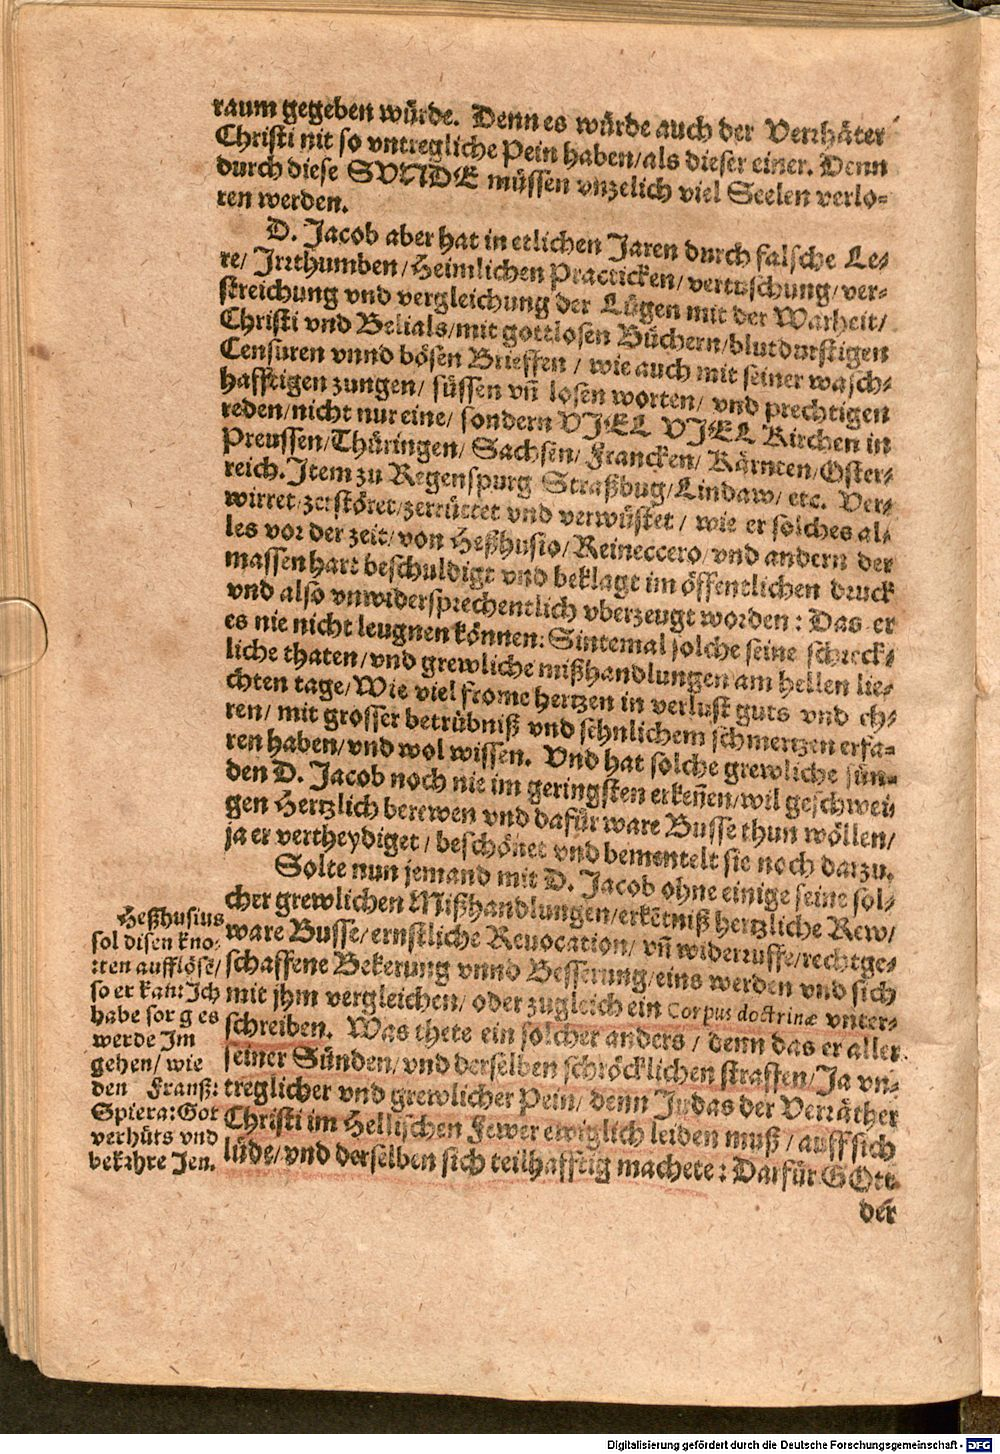 raum gegeben würde. Denn es würde auch der Verrhäter
Christi nit so vntregliche Pein haben/als dieser einer. Denn
durch diese SVNDE müssen vnzelich viel Seelen verlo⸗
ren werden.
D. Jacob aber hat in etlichen Jaren durch falsche Le⸗
re/ Jrrthumben/Heimlichen Practicken/vertuschung/ver⸗
streichung vnd vergleichung der Lügen mit der Warheit/
Christi vnd Belials/mit gottlosen Büchern/blutdurstigen
Censuren vnnd bösen Brieffen / wie auch mit seiner wasch⸗
hafftigen zungen/ süssen vn̄ losen worten/ vnd prechtigen
reden/nicht nur eine/ sondern VJEL VJEL Kirchen in
Preussen/Thüringen/ Sachsen/ Francken/ Kärnten/Oster⸗
reich. Jtem zu Regenspurg Straßbug/Lindaw/ etc. Ver⸗
wirret/zerstöret/zerrüttet vnd verwüstet / wie er solches al⸗
les vor der zeit/von Heßhusio/Reineccero/vnd andern der
massen hart beschuldigt vnd beklagt im öffentlichen druck
vnd also vnwidersprechentlich vberzeugt worden: Das er
es nie nicht leugnen können: Sintemal solche seine schreck⸗
liche thaten/vnd grewliche mißhandlungen am hellen lie⸗
chten tage/Wie viel frome hertzen in verlust guts vnd eh⸗
ren/ mit grosser betrübniß vnd sehnlichem schmertzen erfa⸗
ren haben/vnd wol wissen. Vnd hat solche grewliche sün⸗
den D. Jacob noch nie im geringsten erkeñen/wil geschwei
gen Hertzlich berewen vnd dafür ware Busse thun wöllen/
ja er vertheydiget / beschönet vnd bementelt sie noch darzu.
Solte nun jemand mit D. Jacob ohne einige seine sol⸗
cher grewlichen Mißhandlungen/erkētniß hertzliche Rew/
ware Busse/ernstliche Reuocation/ vn̄ widerruffe/rechtge⸗
schaffene Bekerung vnnd Besserung/eins werden vnd sich
mit jhm vergleichen/ oder zugleich ein Corpus doctrinæ vnter⸗
schreiben. Was thete ein solcher anders / denn das er aller
seiner Sünden/vnd derselben schröcklichen straffen/Ja vn⸗
treglicher vnd grewlicher Pein/ denn Judas der Verräther
Christi im Hellischen Fewer ewiglich leiden muß / auff sich
lüde/vnd derselben sich teilhafftig machete: Darfür GOtt
der
Heßhusius
sol disen kno⸗
tten aufflöse/
so er kan: Jch
habe sorg es
werde Jm
gehen/ wie
den Franß:
Spiera: Got
verhüts vnd
bekehre Jen.
Digitalisierung gefördert durch die Deutsche Forschungsgemeinschaft - DFG